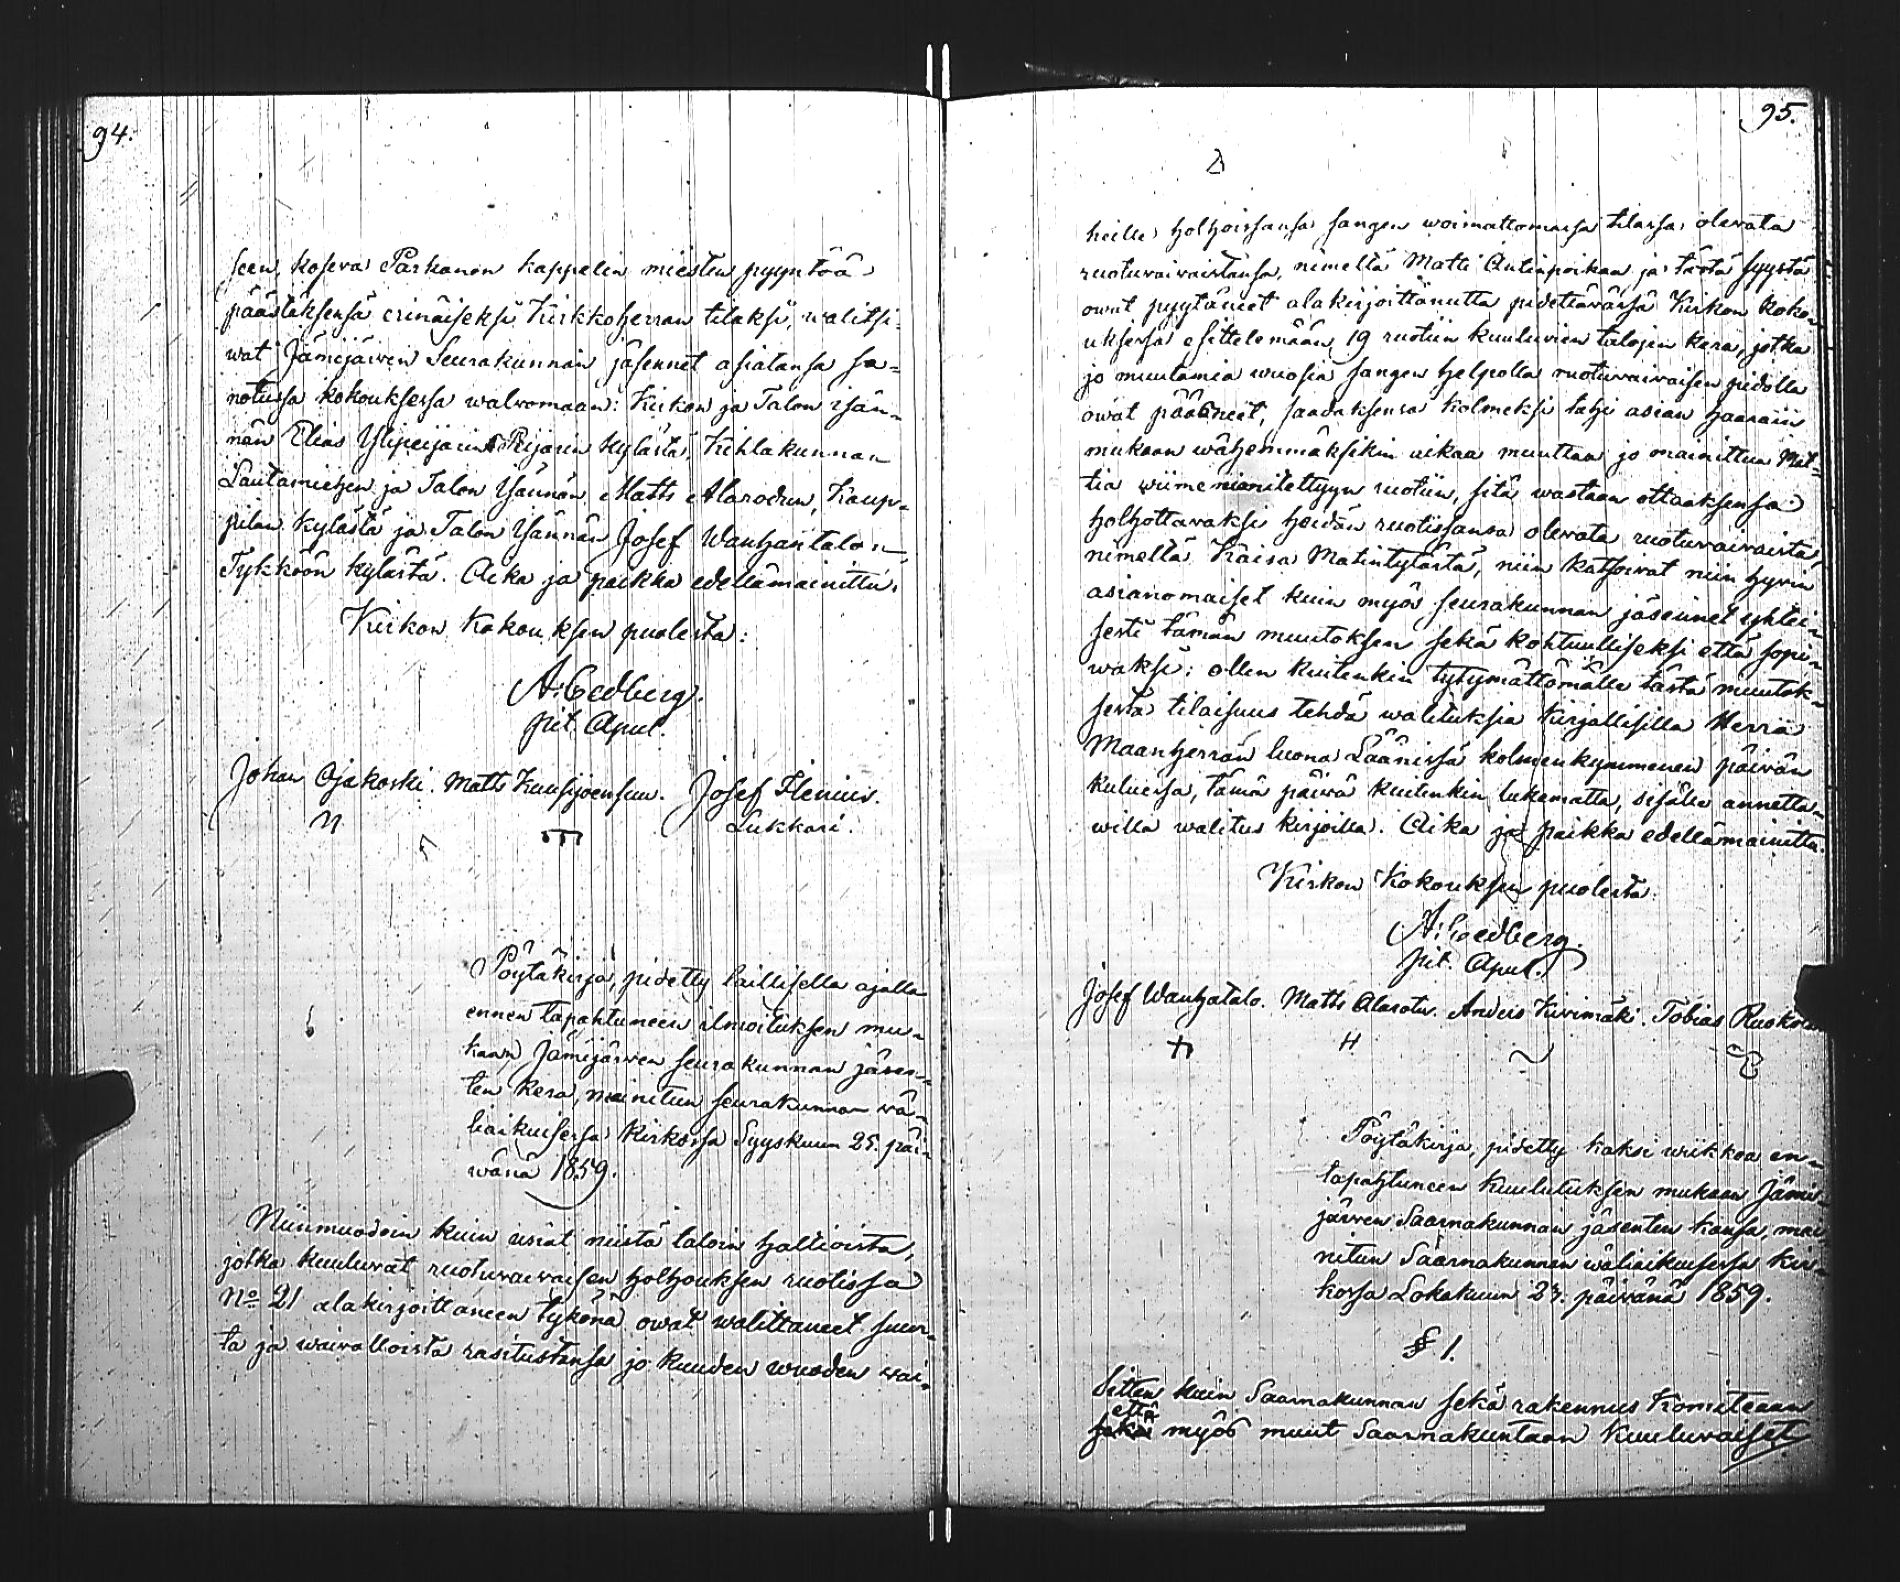 94.
seen, koseva Parkanon kappelin miesten pyyntöä
päästäksensä erinäiseksi Kirkkoherran tilaksi, walitsi-
wat Jämijärwen Seurakunnan jäsennet asiatansa sa-
notussa kokouksessa walwomaan: Kirkon ja Talon isän-
nän Elias Ylipeijarin Peijarin kylästä, Kihlakunnan
Lautamiehen ja Talon Isännän Matts Alarodun, Kaup-
pilan kylästä ja Talon Isännän Josef Wanhantalon
Tykköön kylästä. Aika ja paikka edellämainittu.
Kirkon Kokouksen puolesta:
A. Cedberg.
pit. Apul.
Johan Ojakoski. Matts Kuusijoensuu. Josef Flenius.
Lukkari.
Pöytäkirja, pidetty laillisella ajalla
ennen tapahtuneen ilmoituksen mu-
kaan Jämijärwen seurakunnan jäsen-
ten kera, mainitun seurakunnan wä-
liaikuisessa Kirkossa Syyskuun 25. päi-
wänä 1859.
Niinmuodoin kuin usiat niistä taloin haltioista,
jotka kuuluwat ruotuwaiwaisen holhouksen ruotissa
No 21 alakirjoittaneen tykönä owat walittaneet suur-
ta ja waiwalloista rasitustansa jo kuuden wuoden wai-
95.
heilla holhoissansa sangen woimattomassa tilassa olewata
ruotuwaiwaistansa, nimeltä Matti Antinpoikaa ja tästä syystä
owat pyytäneet alakirjoittanutta pidettäwässä Kirkon koko-
uksessa esittelemään 19 ruotiin kuuluwien talojen kera, jotka
jo muutamia wuosia sangen helpolla ruotuwaiwaisen pidolla
owat päässeet, saadaksensa kolmeksi tahi asian haarain
mukaan wähemmäksikin aikaa muuttaa jo mainittua Mat-
tia wiimemainitettyyn ruotiin, sitä wastaan ottaaksensa
holhottawaksi heidän ruotissansa olewata ruotuwaiwaista,
nimeltä Kaisa Matintytärtä, niin katsoiwat niin hywin
asianomaiset kuin myös seurakunnan jäsennet yhtei-
sesti tämän muutoksen sekä kohtuulliseksi että sopi-
waksi: ollen kuitenkin tytymättömälle tästä muutok-
sesta tilaisuus tehdä walituksia kirjallisilla Herra
Maanherran luona Läänissä kolmenkymmenen päiwän
kuluessa, tämä päiwä kuitenkin lukematta, sisälle annetta-
willa walitus kirjoilla. Aika ja paikka edellämainittu.
Kirkon Kokouksen puolesta
A. Cedberg.
pit. Apul.
Josef Wanhatalo. Matts Alarotu. Anders Kivimäki. Tobias
H
Pöytäkirja, pidetty kaksi wiikkoa en-
tapahtuneen kuulutuksen mukaan Jämi-
järwen Saarnakunnan jäsenten kanssa, mai
nitun Saarnakunnan wäliaikuisessa kir-
kossa Lokakuun 23. päiwänä 1859.
§ 1.
Sitten kuin Saarnakunnan sekä rakennus Komiteaan
että
sekä myös muut Saarnakuntaan Kuuluwaiset